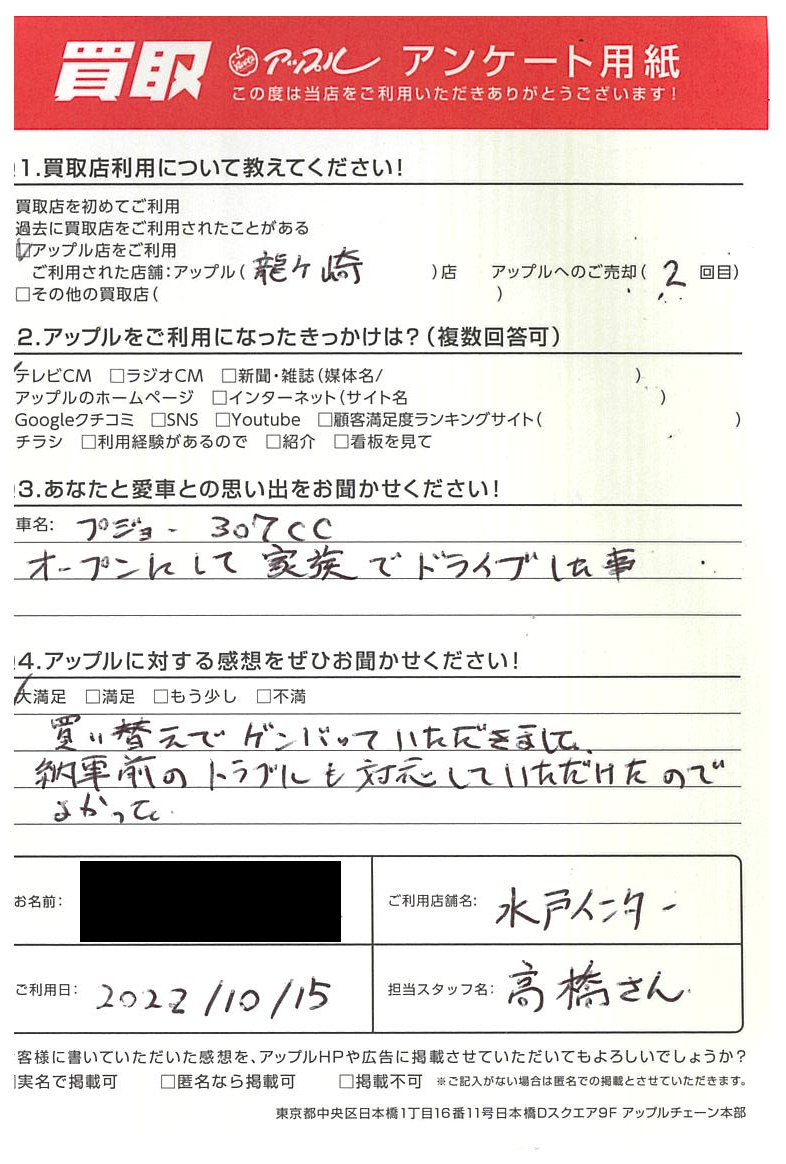 買取 アップル アンケート用紙
この度は当店をご利用いただきありがとうございます!
1.買取店利用について教えてください!
買取店を初めてご利用
過去に買取店をご利用されたことがある
☑アップル店をご利用
ご利用された店舗:アップル(龍ヶ崎)店 アップルへのご売却(2回目)
□その他の買取店( )
2.アップルをご利用になったきっかけは?(複数回答可)
テレビCM □ラジオCM □新聞・雑誌(媒体名/ )
アップルのホームページ □インターネット(サイト名 )
Googleクチコミ □SNS □Youtube □顧客満足度ランキングサイト( )
チラシ □利用経験があるので □紹介 □看板を見て
3.あなたと愛車との思い出をお聞かせください!
車名: プジョー 307CC
オープンにして家族でドライブした事
4.アップルに対する感想をぜひお聞かせください!
大満足 □満足 □もう少し □不満
買い替えでガンバっていただきました。
納車前のトラブルも対応していただけたので
よかった。
お名前: ご利用店舗名: 水戸インター
ご利用日: 2022/10/15 担当スタッフ名: 高橋さん
客様に書いていただいた感想を、アップルHPや広告に掲載させていただいてもよろしいでしょうか?
実名で掲載可 □匿名なら掲載可 □掲載不可 ※ご記入がない場合は匿名での掲載とさせていただきます。
東京都中央区日本橋1丁目16番11号日本橋Dスクエア9F アップルチェーン本部